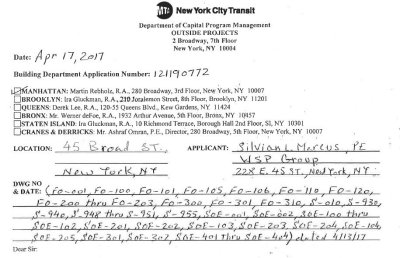 MTA New York City Transit
Department of Capital Program Management
OUTSIDE PROJECTS
2 Broadway, 7th Floor
New York, NY 10004
Date: Apr 17, 2017
Building Department Application Number: 121190772
MANHATTAN: Martin Rebholz, R.A., 280 Broadway, 3rd Floor, New York, NY 10007
BROOKLYN: Ira Gluckman, R.A., 210 Joralemon Street, 8th Floor, Brooklyn, NY 11201
QUEENS: Derek Lee, R.A., 120-55 Queens Blvd., Kew Gardens, NY 11424
BRONX: Mr. Werner deFoe, R.A., 1932 Arthur Avenue, 5th Floor, Bronx, NY 10457
STATEN ISLAND: Ira Gluckman, R.A., 10 Richmond Terrace, Borough Hall 2nd Floor, SI, NY 10301
CRANES & DERRICKS: Mr. Ashraf Omran, P.E., Director, 280 Broadway, 5th Floor, New York, NY 10007
LOCATION: 45 Broad ST. APPLICANT: Silvian L. Marcus, PE
WSP Group
New York, NY 228 E. 45 ST, New York, NY
DWG NO
& DATE: (FO-001, FO-100, FO-101, FO-105, FO-106, FO-110, FO-120,
FO-200 thru FO-203, FO-300, FO-301, FO-310, S-010, S-930,
S-940, S-948 thru S-951, S-955, SOE-001, SOE-002, SOE-100 thru
SOE-102, SOE-201, SOE-202, SOE-103, SOE-203, SOE-204, SOE-104,
SOE-205, SOE-301, SOE-302, SOE-401 thru SOE-404) dated 4/13/17
Dear Sir: